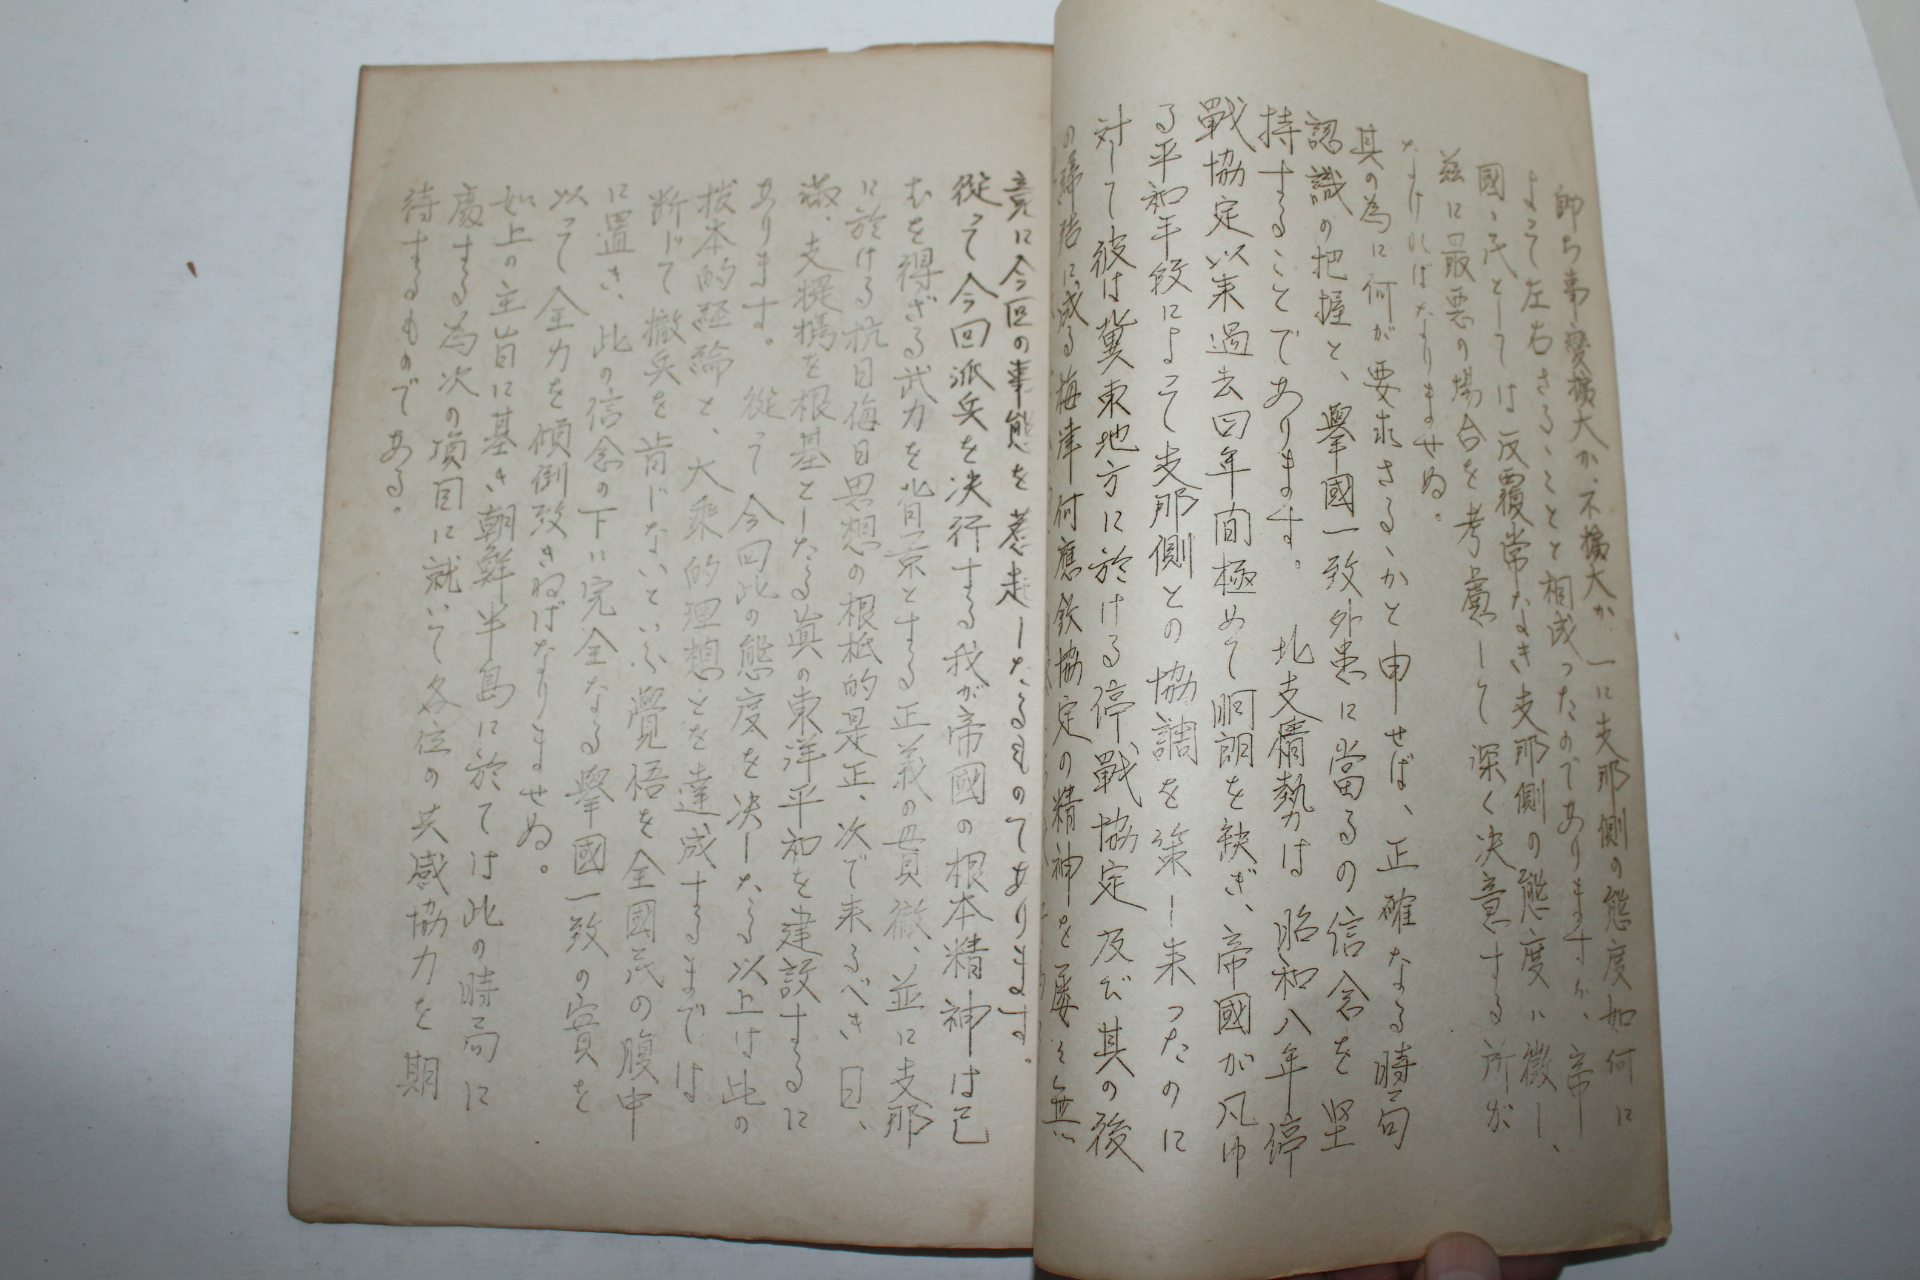 即ち事變擴大か、不擴大か、一に支那側の態度如何に
よって左右さるゝことゝ相成ったのでありますが、帝
國々民としては反覆常なき支那側の態度に徴し、
茲に最悪の場合を考慮して深く決意する所が
なければなりませぬ。
其の為に何が要求さるゝかと申せば、正確なる時局
認識の把握と、擧國一致外患に當るの信念を堅
持することであります。 北支情勢は昭和八年停
戰協定以来過去四年間極めて明朗を缺ぎ、帝國が凡ゆ
る平和手段によって支那側との協調を策し来ったのに
対して彼は冀東地方に於ける停戰協定及び其の後
の 梅津何應欽協定の精神を屡々無
竟に今回の事態を惹起したるものてあります。
從って今回派兵を决行する我が帝國の根本精神は已
むを得ざる武力を背景とする正義の貫徹、並に支那
に於ける抗日侮日思想の根柢的是正、次で来るべき日、
滿、支提携を根基としたる眞の東洋平和を建設するに
あります。 從って今回此の態度を决したる以上は此の
拔本的経論と、大乘的理想とを達成するまでは
断じて撤兵を肯じないといふ覺悟を全國民の腹中
に置き、此の信念の下に完全なる擧國一致の實を
以って全力を傾倒致さねばなりませぬ。
如上の主旨に基き朝鮮半島に於ては此の時局に
處する為次の項目に就いて各位の共感協力を期
待するものである。